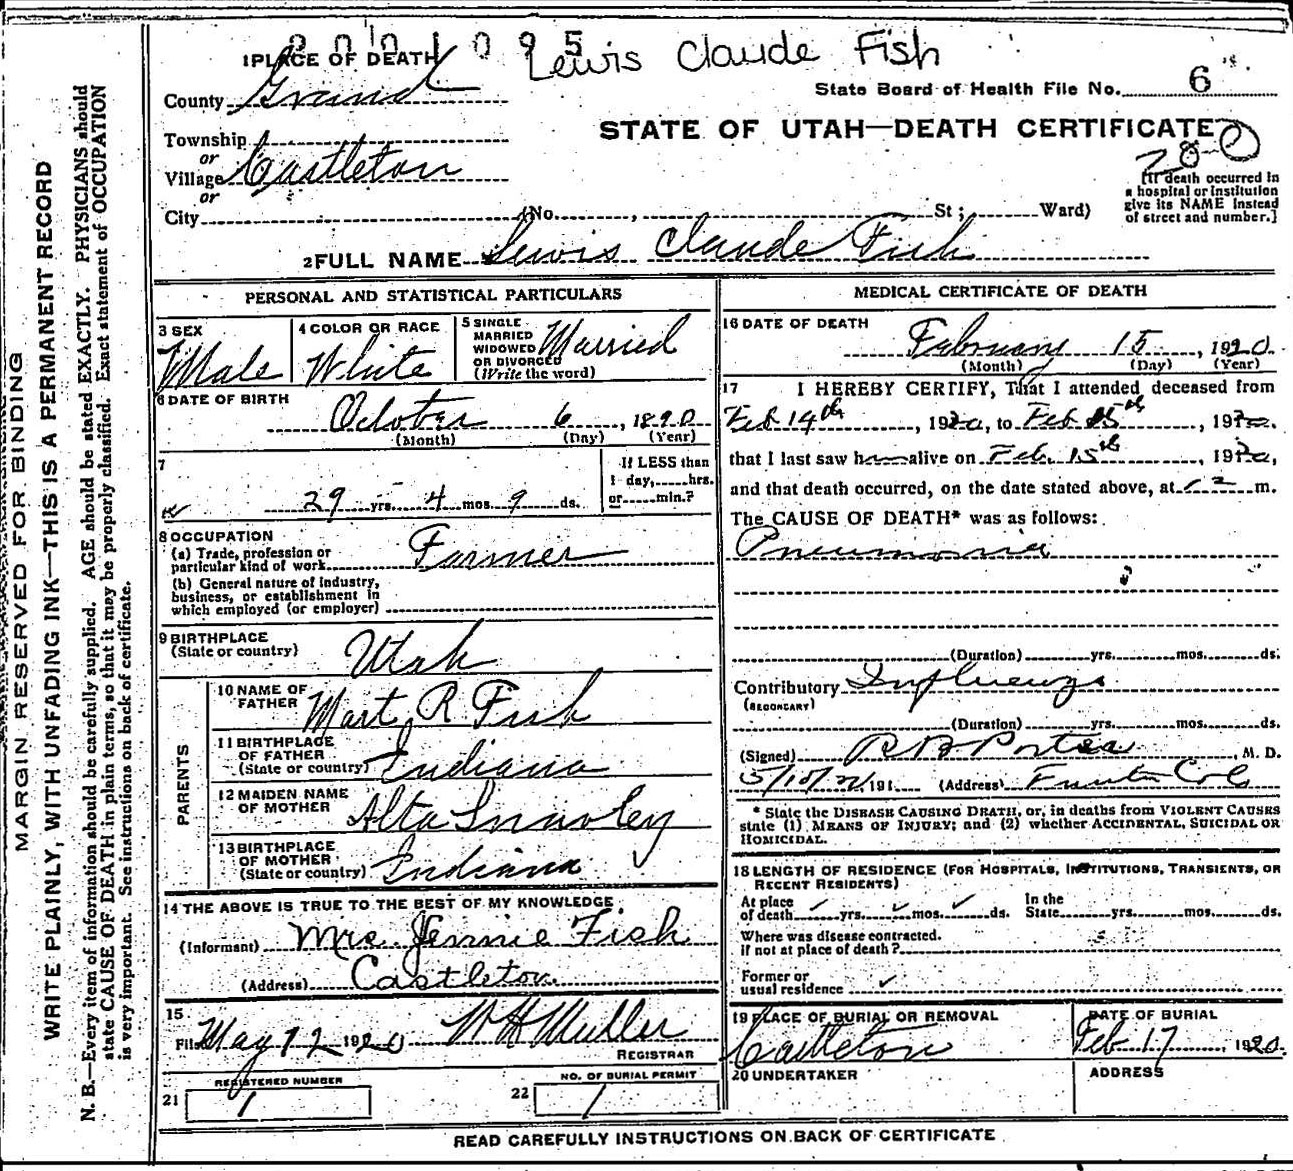 2001095
Lewis Claude Fish
1 PLACE OF DEATH
State Board of Health File No. 6
County Grand
STATE OF UTAH—DEATH CERTIFICATE
Township
or
Village Castleton
or
City (No. , St; Ward)
[If death occurred in a hospital or institution give its NAME instead of street and number.]
2 FULL NAME Lewis Claude Fish
PERSONAL AND STATISTICAL PARTICULARS
3 SEX
Male
4 COLOR OR RACE
White
5 SINGLE
MARRIED
WIDOWED
OR DIVORCED
(Write the word)
Married
6 DATE OF BIRTH
October 6, 1890
(Month) (Day) (Year)
7
29 yrs. 4 mos. 9 ds.
If LESS than
1 day, hrs.
or min.?
8 OCCUPATION
(a) Trade, profession or
particular kind of work Farmer
(b) General nature of industry,
business, or establishment in
which employed (or employer)
9 BIRTHPLACE
(State or country)
Utah
PARENTS
10 NAME OF
FATHER
Mart R Fish
11 BIRTHPLACE
OF FATHER
(State or country) Indiana
12 MAIDEN NAME
OF MOTHER
Alta
13 BIRTHPLACE
OF MOTHER
(State or country) Indiana
14 THE ABOVE IS TRUE TO THE BEST OF MY KNOWLEDGE
(Informant) Mrs. Jennie Fish
(Address) Castleton.
15
Filed May 12 1920 W H Muller
REGISTRAR
REGISTERED NUMBER
21 1
NO. OF BURIAL PERMIT
22 1
MEDICAL CERTIFICATE OF DEATH
16 DATE OF DEATH
February 15, 1920.
(Month) (Day) (Year)
17 I HEREBY CERTIFY, That I attended deceased from
Feb 14th, 1920, to Feb 15th, 1920.
that I last saw him alive on Feb. 15th, 1920,
and that death occurred, on the date stated above, at 12 m.
The CAUSE OF DEATH* was as follows:
Pneumonia
(Duration) yrs. mos. ds.
Contributory Influenza
(SECONDARY)
(Duration) yrs. mos. ds.
(Signed) R B Porter M. D.
191 (Address) Fruita Colo
* State the DISEASE CAUSING DEATH, or, in deaths from VIOLENT CAUSES
state (1) MEANS OF INJURY; and (2) whether ACCIDENTAL, SUICIDAL OR
HOMICIDAL.
18 LENGTH OF RESIDENCE (FOR HOSPITALS, INSTITUTIONS, TRANSIENTS, OR
RECENT RESIDENTS)
At place
of death yrs. mos. ds.
In the
State yrs. mos. ds.
Where was disease contracted.
if not at place of death?
Former or
usual residence
19 PLACE OF BURIAL OR REMOVAL
Castleton
DATE OF BURIAL
Feb 17, 1920.
20 UNDERTAKER
ADDRESS
READ CAREFULLY INSTRUCTIONS ON BACK OF CERTIFICATE
MARGIN RESERVED FOR BINDING
WRITE PLAINLY, WITH UNFADING INK—THIS IS A PERMANENT RECORD
N. B.—Every item of information should be carefully supplied. AGE should be stated EXACTLY. PHYSICIANS should
state CAUSE OF DEATH in plain terms, so that it may be properly classified. Exact statement of OCCUPATION
is very important. See instructions on back of certificate.